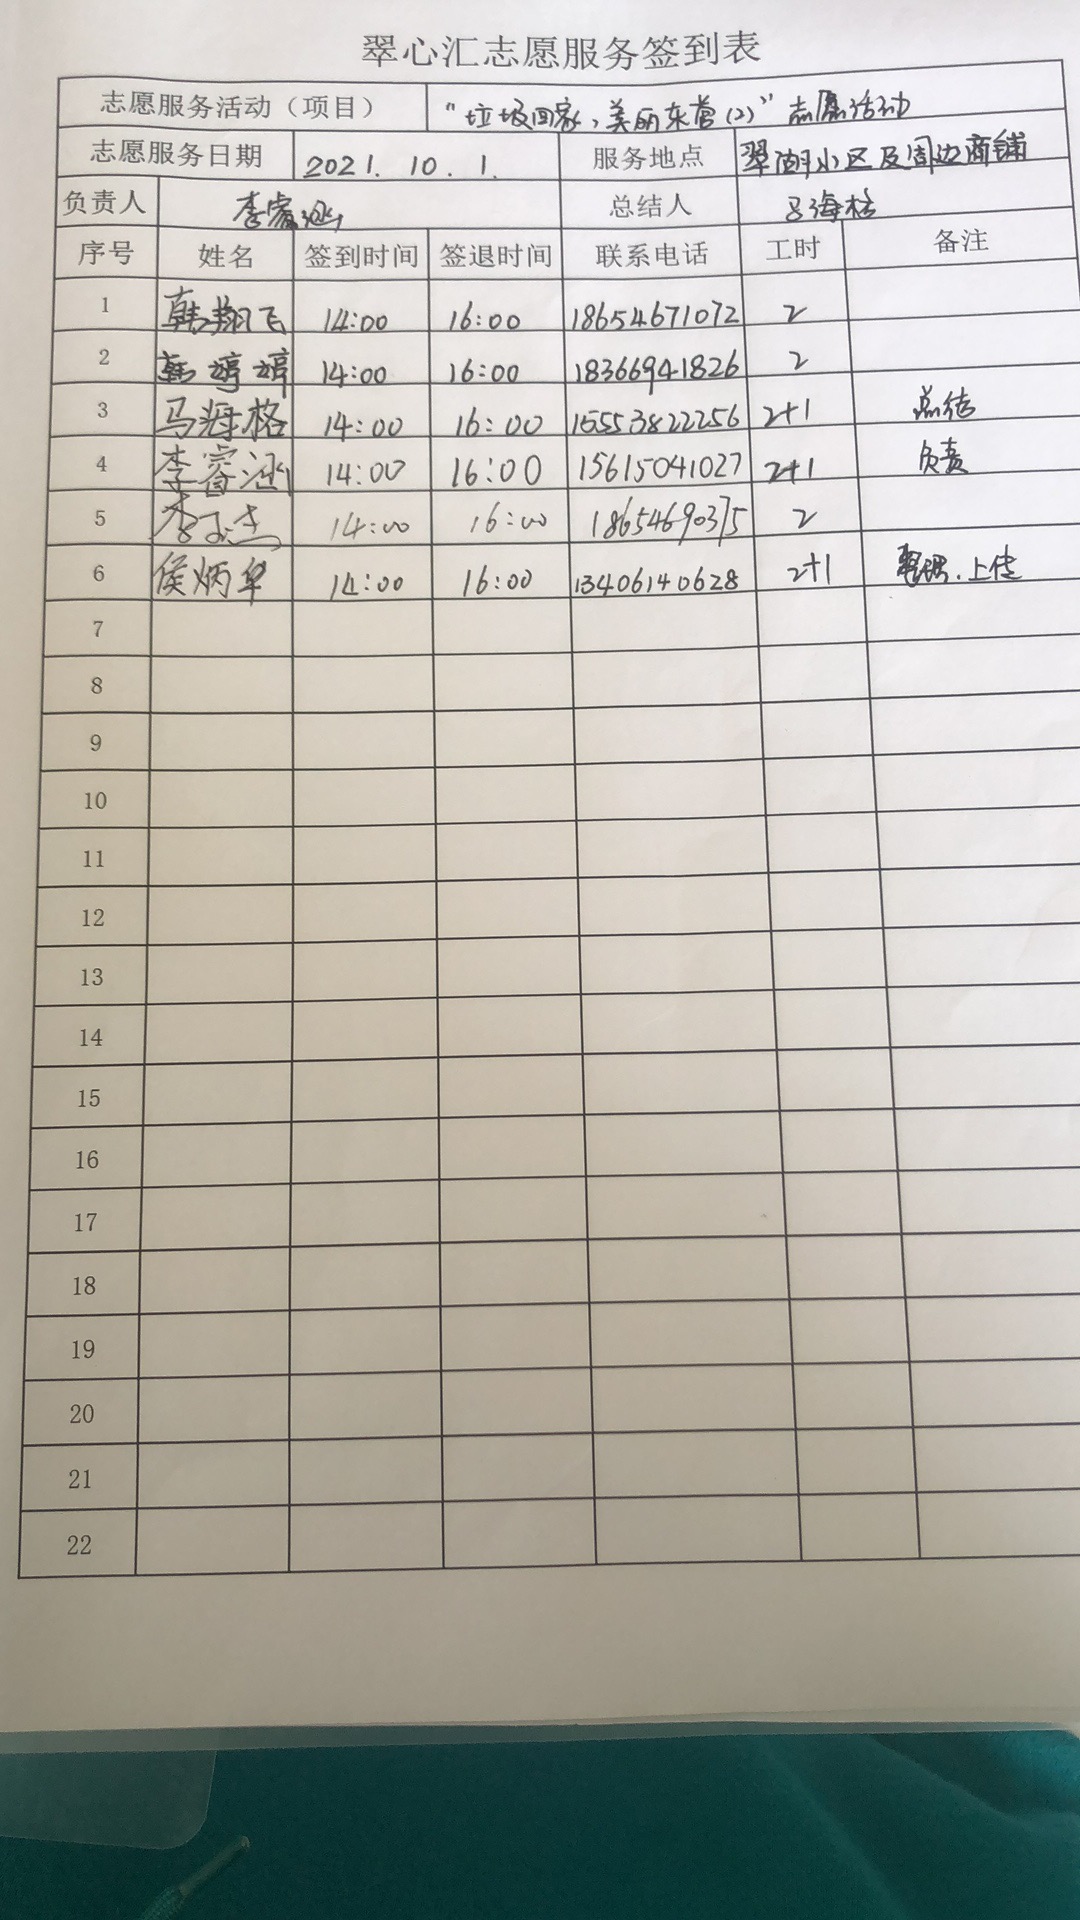 翠心汇志愿服务签到表
志愿服务活动（项目） "垃圾回家，美丽东营(2)"志愿活动
志愿服务日期 2021.10.1. 服务地点 翠湖小区及周边商铺
负责人 李睿涵 总结人 马海格
序号 姓名 签到时间 签退时间 联系电话 工时 备注
1 韩翔飞 14:00 16:00 18654671072 2
2 韩婷婷 14:00 16:00 18366941826 2
3 马海格 14:00 16:00 15553822256 2+1 总结
4 李睿涵 14:00 16:00 15615041027 2+1 负责
5 李玉杰 14:00 16:00 18654690375 2
6 侯炳 14:00 16:00 13406140628 2+1 上传
7
8
9
10
11
12
13
14
15
16
17
18
19
20
21
22